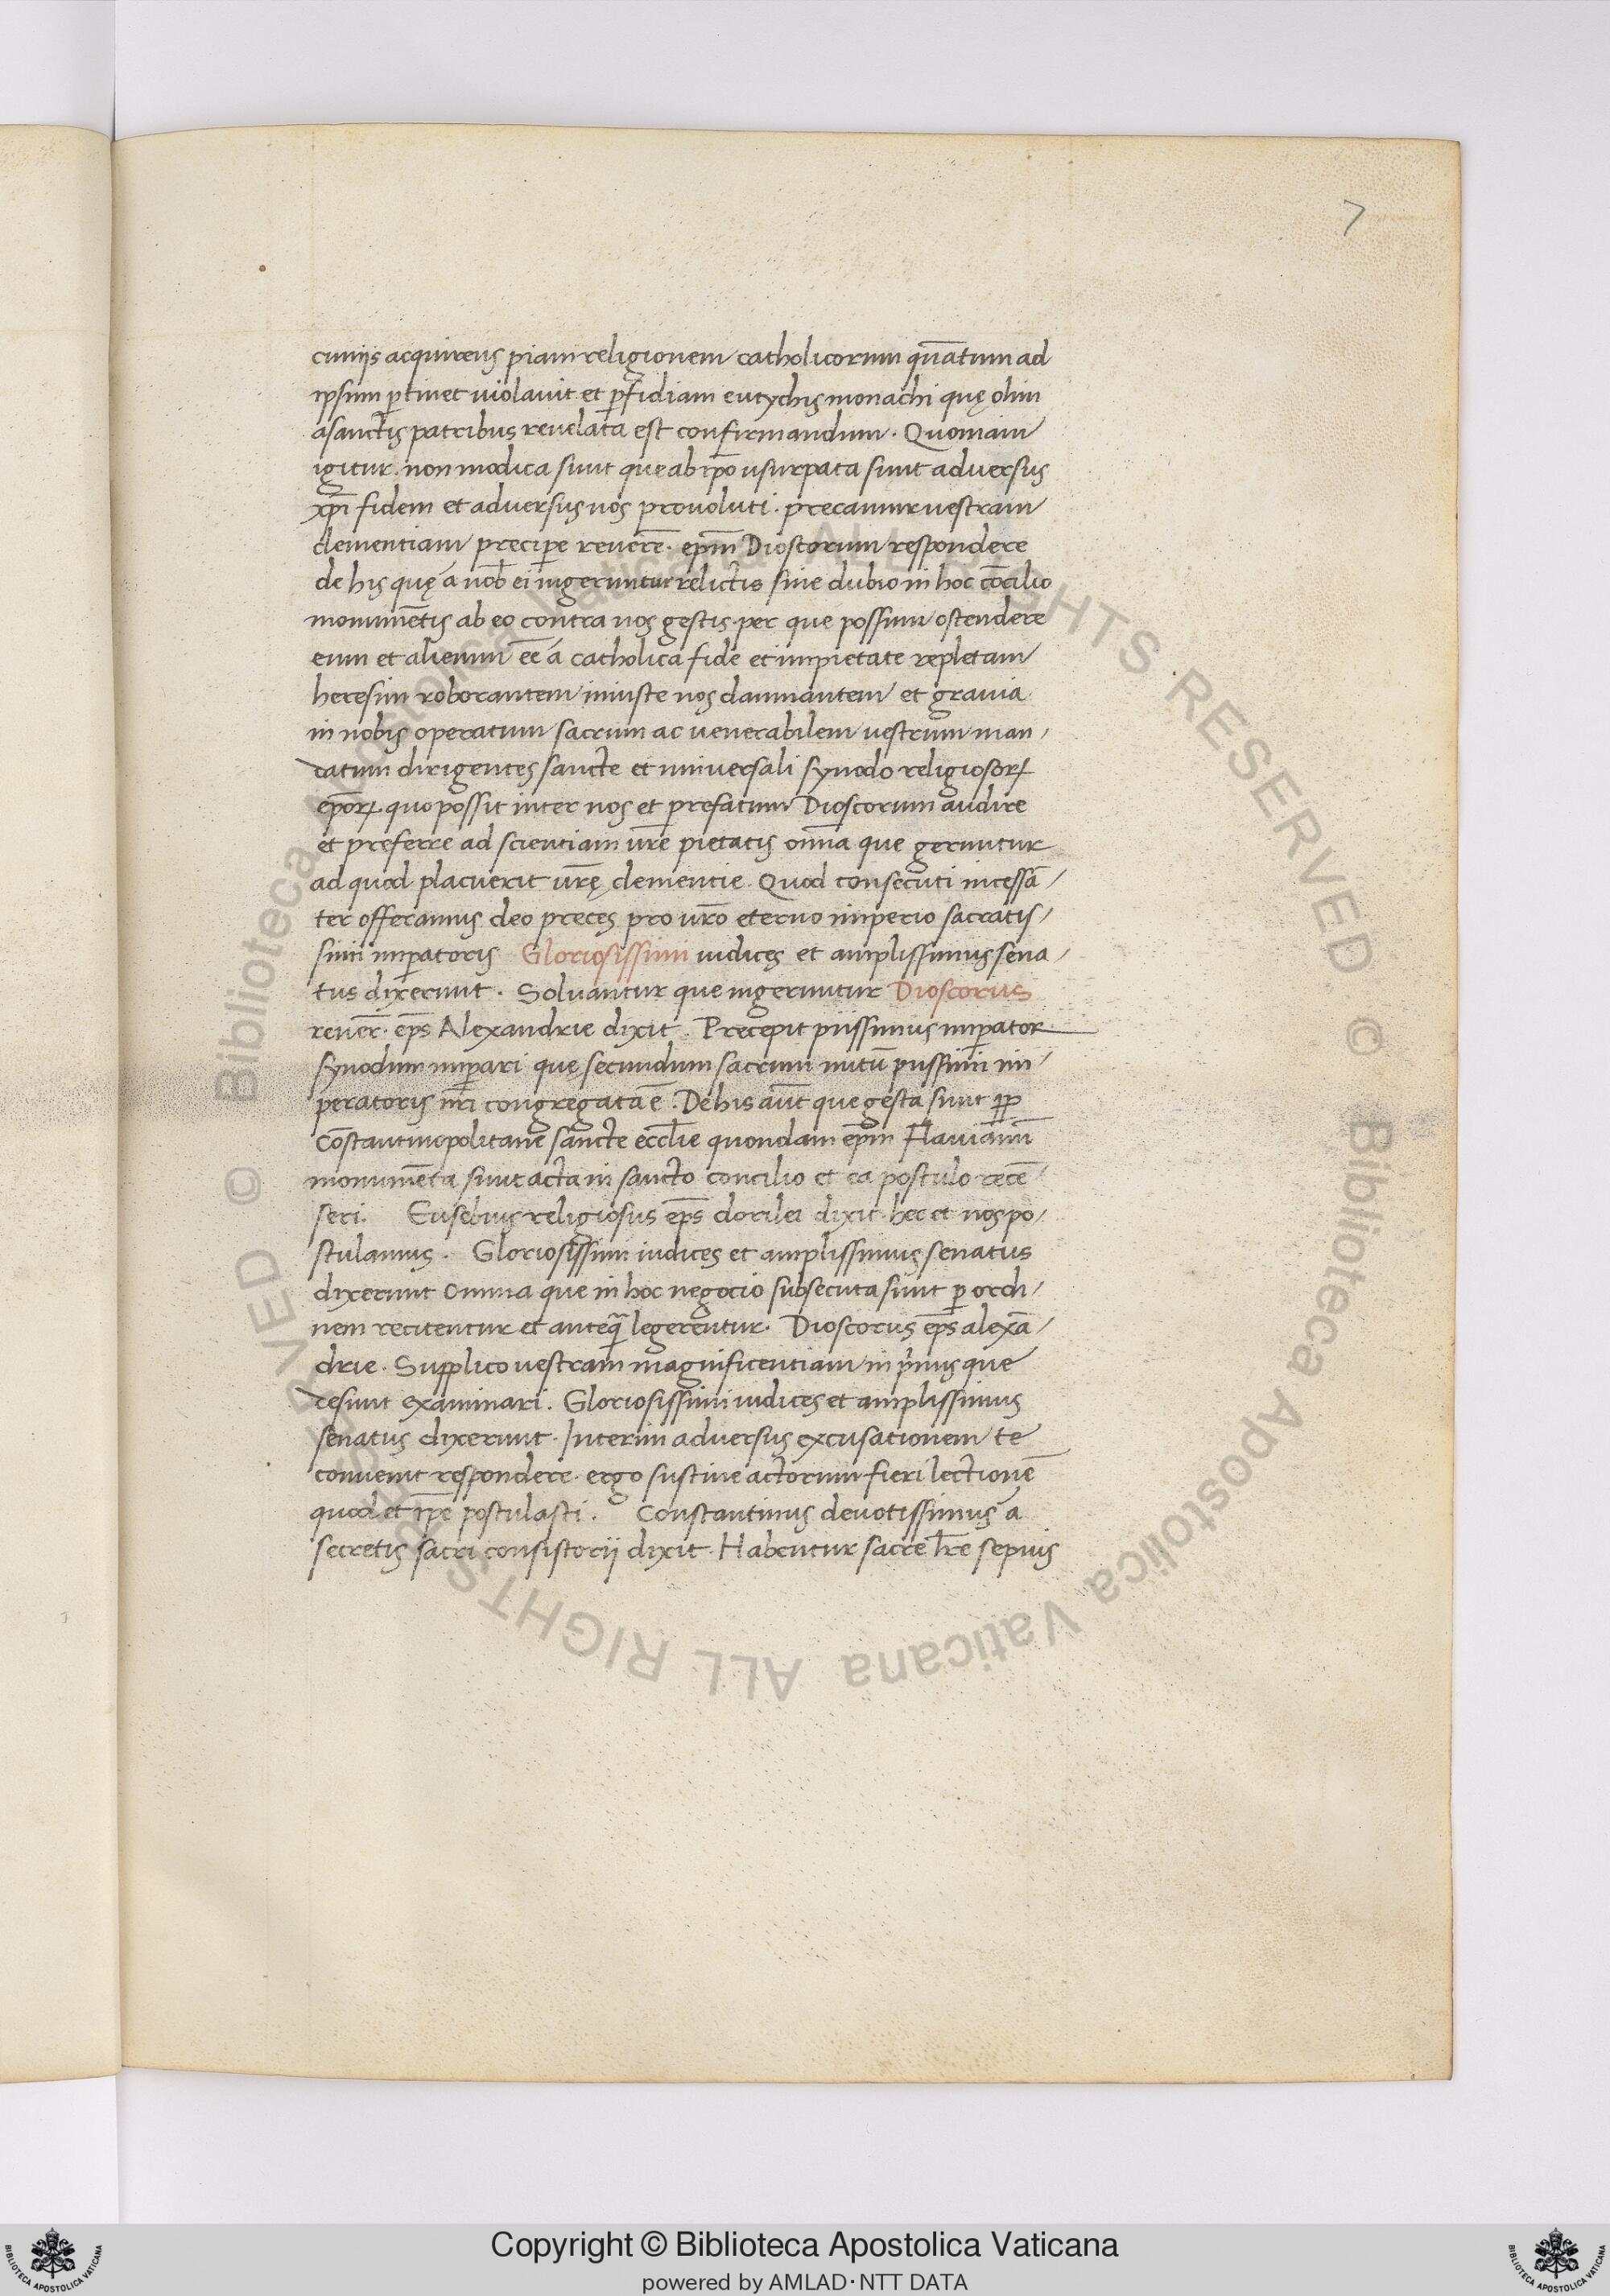 7
cuniis acquirens piam religionem catholicorum quãtum ad
ipsum ꝑtinet violavit et ꝑfidiam eutychis monachi quę olim
a sanctis patribus revelata est confirmandum. Quoniam
igitur. non modica sunt que ab ip̃o usurpata sunt adversus
xp̃i fidem et adversus nos provoluti. precamur vestram
clementiam preciꝑe reverẽ. ep̃m Dioscorum respondere
de his quę a nob̃ ei ingeruntur relictis sine dubio in hoc cõcilio
monumẽtis ab eo contra nos gestis. per que possim ostendere
eum et alienum ẽe a catholica fide et impietate repletam
heresim roborantem iniuste nos damnantem et gravia
in nobis operatum sacrum ac venerabilem vestrum man/
datum dirigentes sancte et universali synodo religiosoꝝ
ep̃oꝝ. quo possit inter nos et prefatum Dioscorum audire
et preferre ad scientiam vr̃e pietatis om̃a que geruntur
ad quod placuerit vr̃ę clementie. Quod consecuti incessã/
ter offeramus deo preces pro vr̃o eterno imperio sacratis/
simi imꝑatoris Gloriosissimi iudices et amplissimus sena/
tus dixerunt. Solvantur que ingeruntur Dioscorus
rever̃. ep̃s Alexandrie dixit. Precepit piissimus imꝑator
synodum imꝑari que secundum sacrum nutũ piissimi im/
peratoris nr̃i congregata ẽ. De his aũt que gesta sunt ꝓꝑ
Cõstantinopolitane sancte eccl̃ie quondam ep̃m Flavianũ
monumẽta sunt acta in sancto concilio et ea postulo recẽ/
seri. Eusebius religiosus ep̃s dorilei dixit. hec et nos po/
stulamus. Gloriosissimi iudices et amplissimus senatus
dixerunt omnia que in hoc negocio subsecuta sunt ꝑ ordi/
nem recitentur et anteq̃ legerentur. Dioscorus ep̃s alexã/
drie. Supplico vestram magnificentiam in primis que
desunt examinari. Gloriosissimi iudices et amplissimus
senatus dixerunt. Interim adversus excusationem te
convenit respondere. ergo sustine actorum fieri lectionẽ
quod et ip̃e postulasti. Constantinus devotissimus a
secretis sacri consistorij dixit. Habentur sacre l̃re sepius
© Biblioteca Apostolica Vaticana ALL RIGHTS RESERVED © Biblioteca Apostolica Vaticana ALL RIGHTS RESERVED
Copyright © Biblioteca Apostolica Vaticana
powered by AMLAD·NTT DATA
BIBLIOTECA APOSTOLICA VATICANA
BIBLIOTECA APOSTOLICA VATICANA